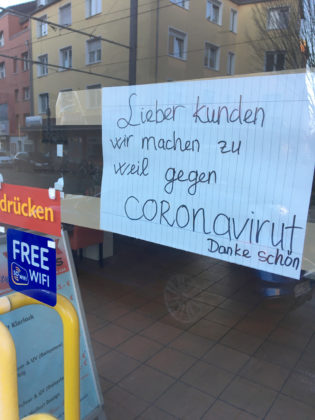 Lieber kunden
wir machen zu
weil gegen
CORONAVIRUT
Danke schön
drücken
FREE
WIFI